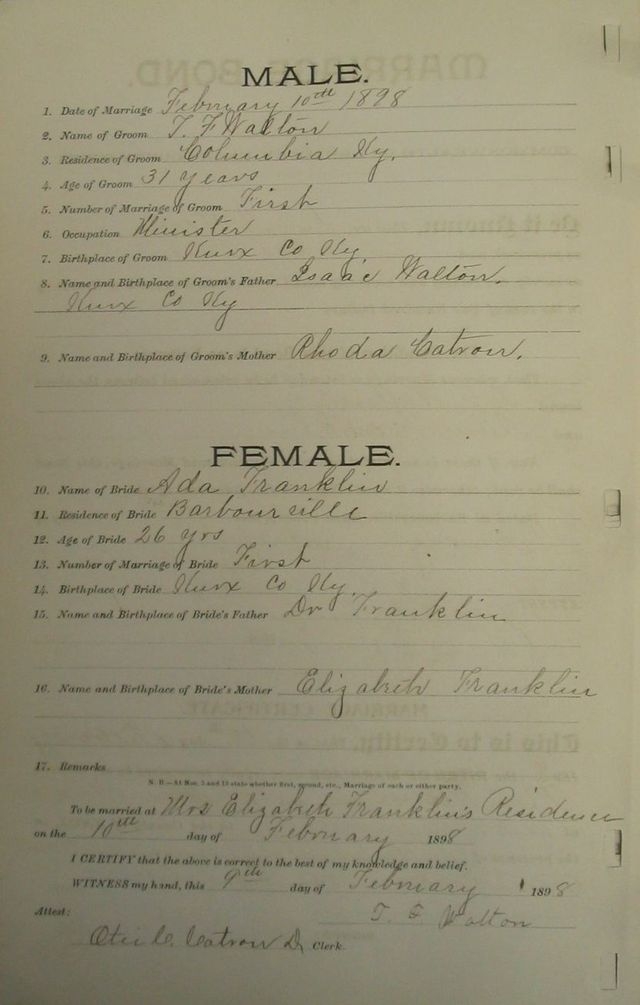 MALE.
1. Date of Marriage February 10th 1898
2. Name of Groom T. F Walton
3. Residence of Groom Columbia Ky.
4. Age of Groom 31 years
5. Number of Marriage of Groom First
6. Occupation Minister
7. Birthplace of Groom Knox Co Ky.
8. Name and Birthplace of Groom's Father Isaac Walton.
Knox Co Ky
9. Name and Birthplace of Groom's Mother Rhoda Catron.
FEMALE.
10. Name of Bride Ada Franklin
11. Residence of Bride Barbourville
12. Age of Bride 26 yrs
13. Number of Marriage of Bride First
14. Birthplace of Bride Knox Co Ky.
15. Name and Birthplace of Bride's Father Dr Franklin
16. Name and Birthplace of Bride's Mother Elizabeth Franklin
17. Remarks
N. B.—At Nos. 5 and 13 state whether first, second, etc., Marriage of each or either party.
To be married at Mrs Elizabeth Franklin's Residence
on the 10th day of February 1898
I CERTIFY that the above is correct to the best of my knowledge and belief.
WITNESS my hand, this 9th day of February 1898
T. F Walton
Attest:
Catron D. Clerk.